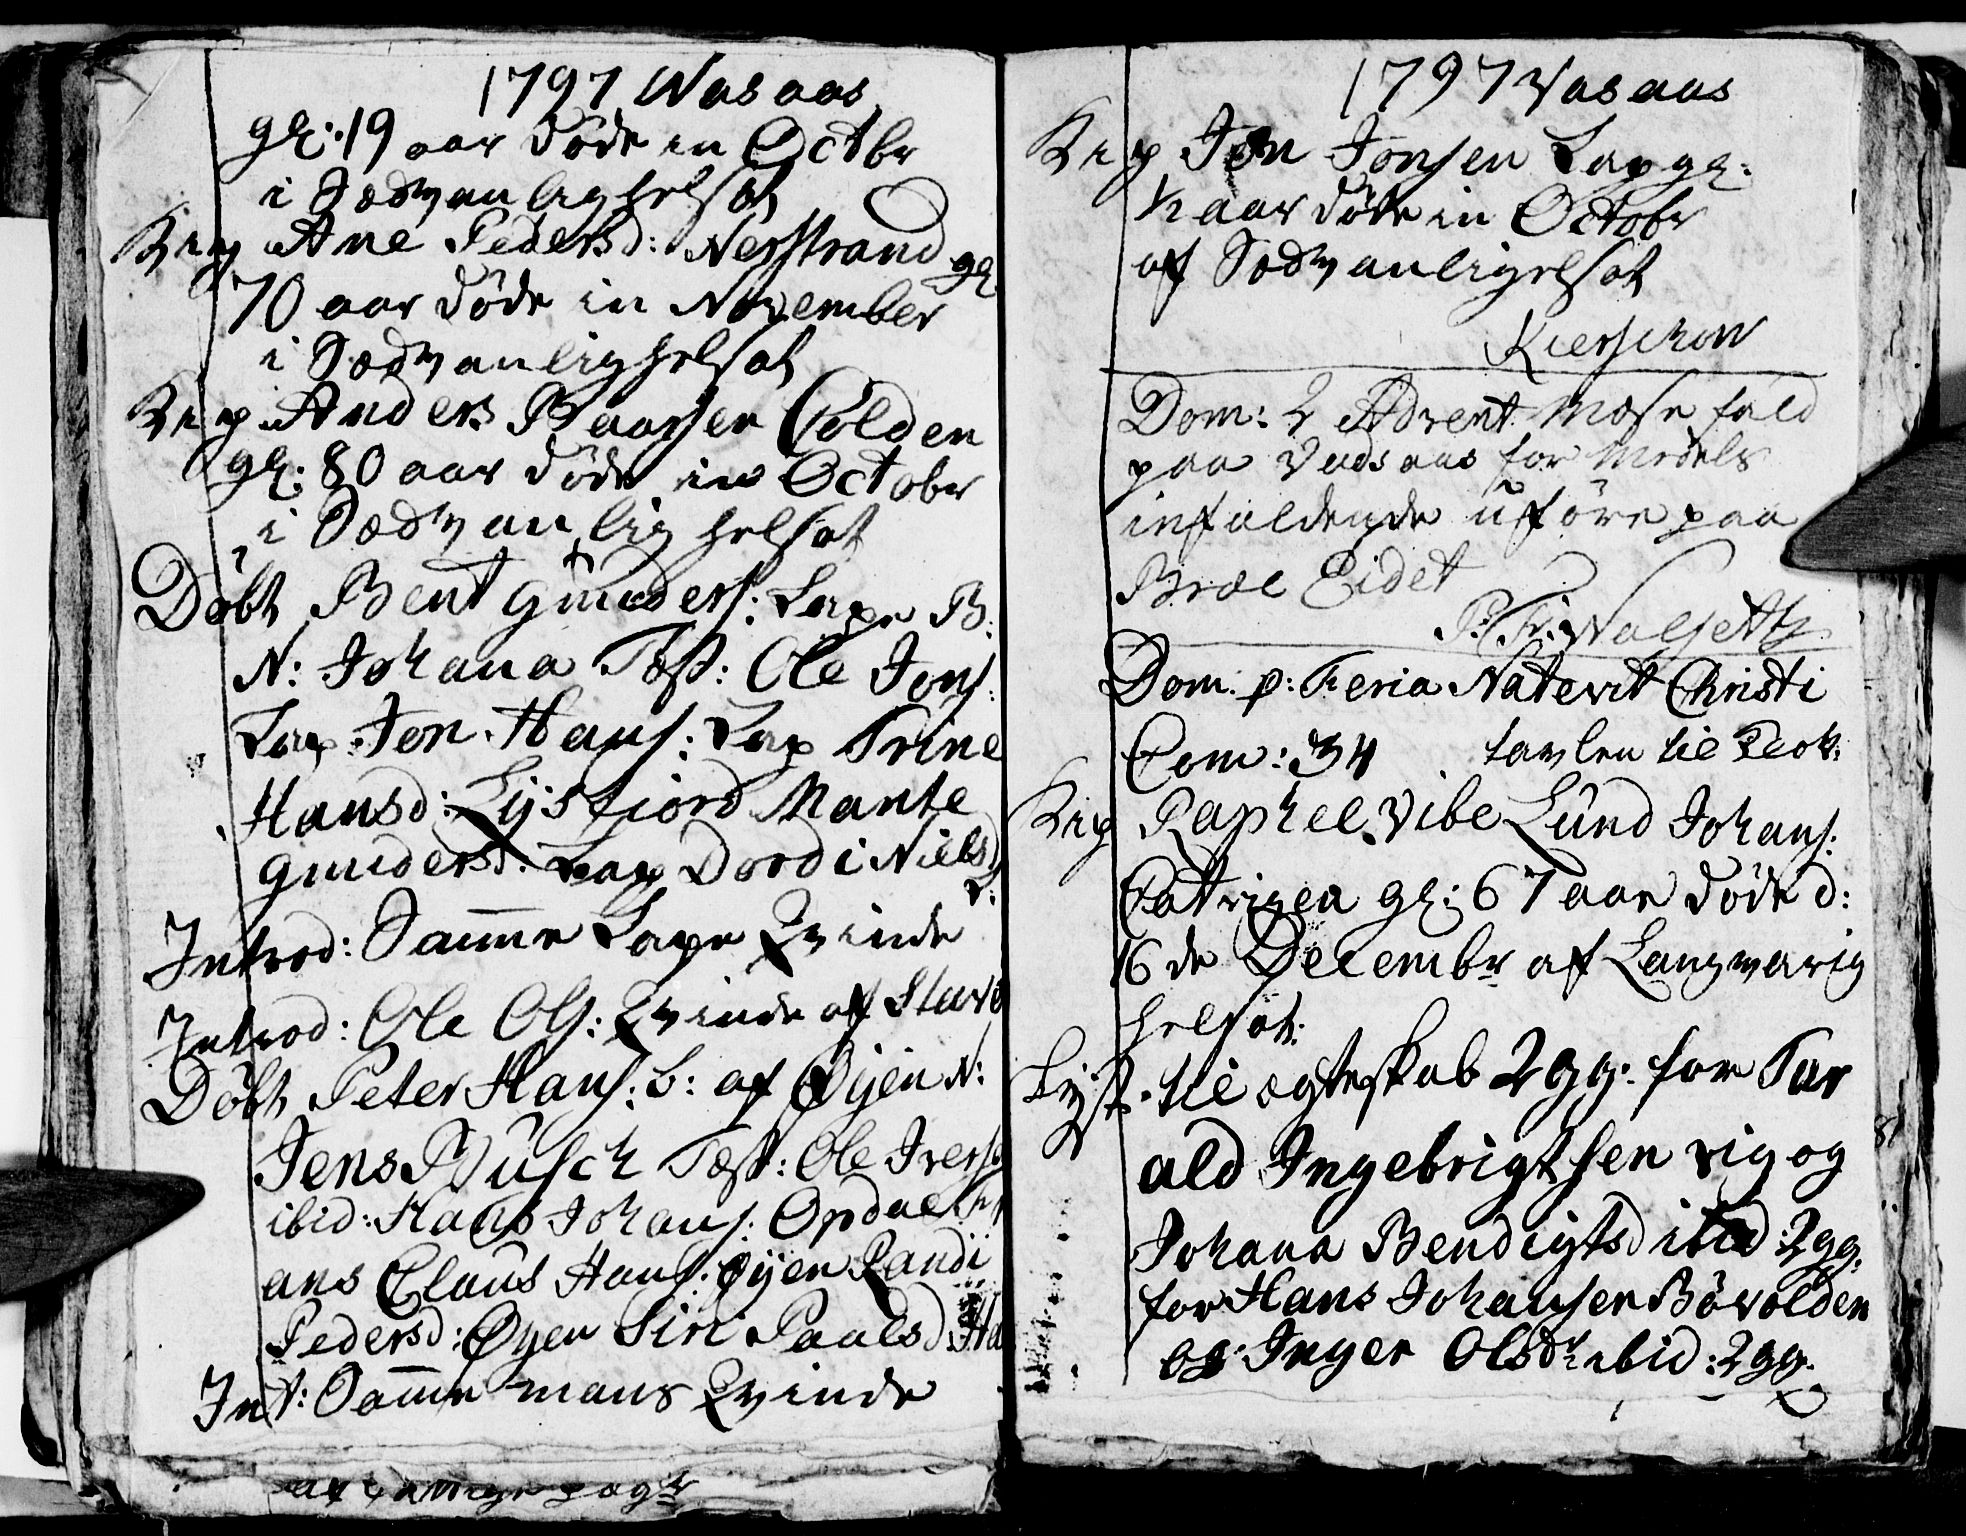 1797 Wasaas
gl: 19 aar døde in Octbr
i Sædvanlighelsot
Ane Pedersd: Nerstrand gl
70 aar døde in November
i Sædvanlighelsot
Anders Paarsen Colden
gl: 80 aar døde in Octobr
i Sædvanlighelsot
Döbt Bent Gunders: Lape B:
N: Johana Test: Ole Jons:
Lap Jon Hans: Lap Trine
Hansd: Lysfiord Mante
Gundersd. Lap Dordi Niels
d:
Introd: Samme Lape Qvinde
Introd: Ole Ols: Qvinde af
Döbt Peter Hans: b: af Øijen N:
Jens Busch Test: Ole Ivers
ibid: Hans Johans: Opdael
ans Claus Hans: Øijen Randi
Pedersd: Øyen Siri Paalsd
Int: Samme mans Qvinde
1797 Vasaas
Jon Jonsen Lap gl:
1/2 aar døde in Octobr
af Sædvanligelsot
Kierschow
Dom: 2 Advent Mæse fald
paa Vadsaas for Medels
infaldende uföre paa
Brae Eidet
Dom. p: Feria Nativit Christi
Com: 34 tavlen til
Raphel Vibe Lund Johans:
gl: 67 aar døde d:
16 de Decembr af Langvarig
helsot:
Lyst til ægteskab 2 gg: for Tar
ald Ingebrigtsen vig og
Johana Bendigtsd ibid: 2 gg.
for Hans Johansen Bövolden
og Inger Olsdr ibid: 2 gg.